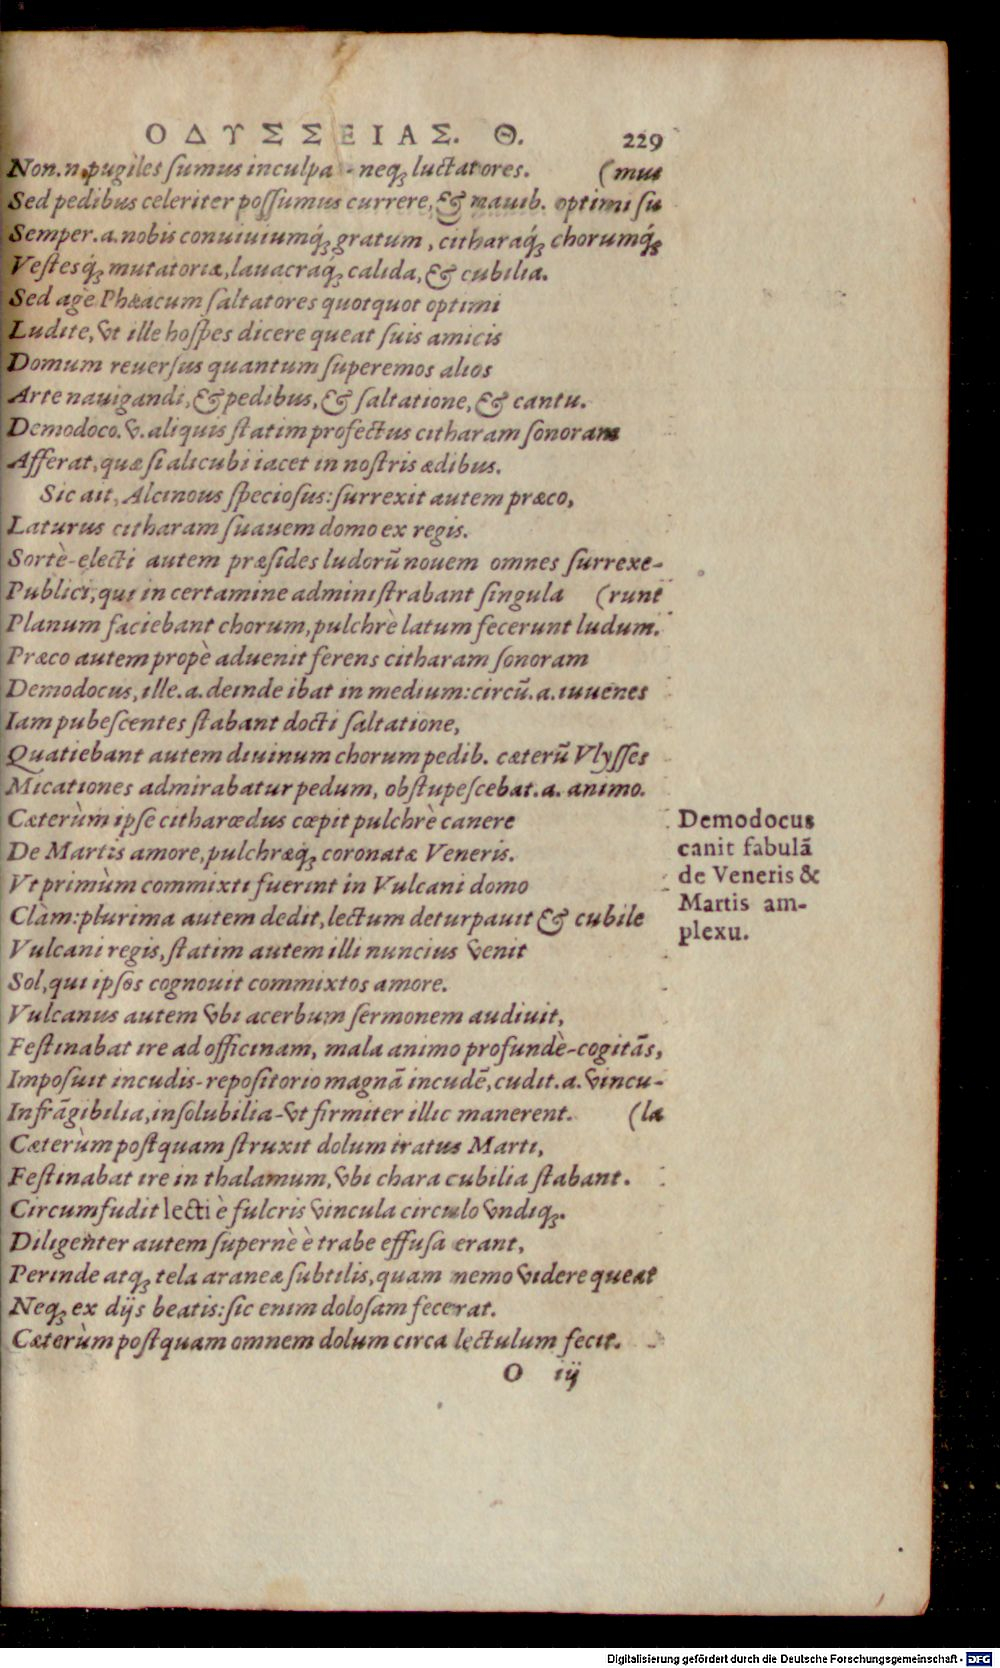 ΟΔΥΣΣΕΙΑΣ. Θ. 229
Non. n. pugiles sumus inculpa neq; luctatores. (mus
Sed pedibus celeriter possumus currere, & nauib. optimi su
Semper. a. nobis conuiuiumq́; gratum, citharaq́; chorumq́;
Vestesq́; mutatoriæ, lauacraq́; calida, & cubilia.
Sed age Phæacum saltatores quotquot optimi
Ludite, vt ille hospes dicere queat suis amicis
Domum reuersus quantum superemos alios
Arte nauigandi, & pedibus, & saltatione, & cantu.
Demodoco. v. aliquis statim profectus citharam sonoram
Afferat, quæ si alicubi iacet in nostris ædibus.
Sic ait, Alcinous speciosus: surrexit autem præco,
Laturus citharam suauem domo ex regis.
Sortè-electi autem præsides ludorũ nouem omnes surrexe-
Publici, qui in certamine administrabant singula (runt
Planum faciebant chorum, pulchrè latum fecerunt ludum.
Præco autem propè aduenit ferens citharam sonoram
Demodocus, ille. a. deinde ibat in medium: circũ. a. iuuenes
Iam pubescentes stabant docti saltatione,
Quatiebant autem diuinum chorum pedib. cæterũ Vlysses
Micationes admirabatur pedum, obstupescebat. a. animo.
Cæterùm ipse citharœdus cœpit pulchrè canere
De Martis amore, pulchræq; coronatæ Veneris.
Vt primùm commixti fuerint in Vulcani domo
Clàm: plurima autem dedit, lectum deturpauit & cubile
Vulcani regis, statim autem illi nuncius venit
Sol, qui ipsos cognouit commixtos amore.
Vulcanus autem vbi acerbum sermonem audiuit,
Festinabat ire ad officinam, mala animo profundè-cogitãs,
Imposuit incudis-repositorio magnã incudẽ, cudit. a. vincu-
Infrãgibilia, insolubilia-vt firmiter illic manerent. (la
Cæterùm postquam struxit dolum iratus Marti,
Festinabat ire in thalamum, vbi chara cubilia stabant.
Circumfudit lecti è fulcris vincula circulo vndiq;.
Diligenter autem supernè è trabe effusa erant,
Perinde atq; tela araneæ subtilis, quam nemo videre queat
Neq; ex dijs beatis: sic enim dolosam fecerat.
Cæterùm postquam omnem dolum circa lectulum fecit.
O iij
Demodocus
canit fabulã
de Veneris &
Martis am-
plexu.
Digitalisierung gefördert durch die Deutsche Forschungsgemeinschaft - DFG